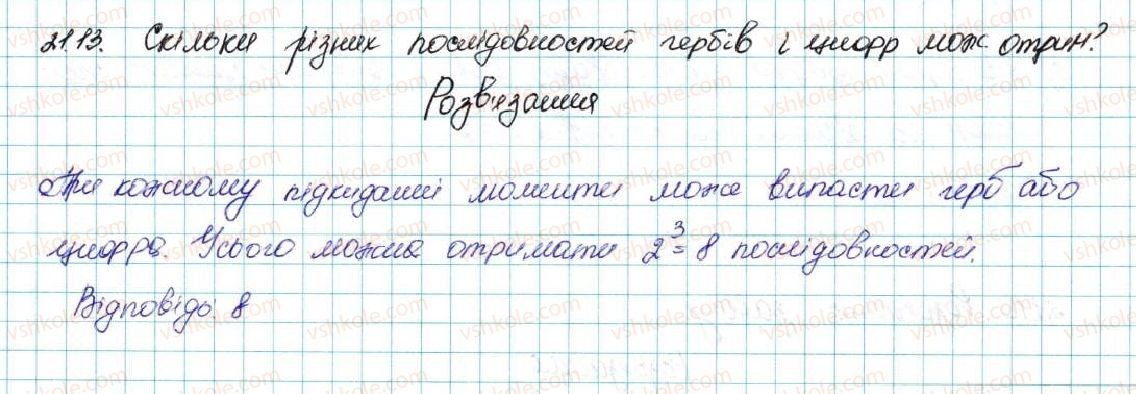 21.13. Скільки різних послідовностей гербів і цифр мож отрим?
Розв'язання
При кожному підкиданні монети може випасти герб або
цифра. Усього можна отримати 2³ = 8 послідовностей.
Відповідь: 8